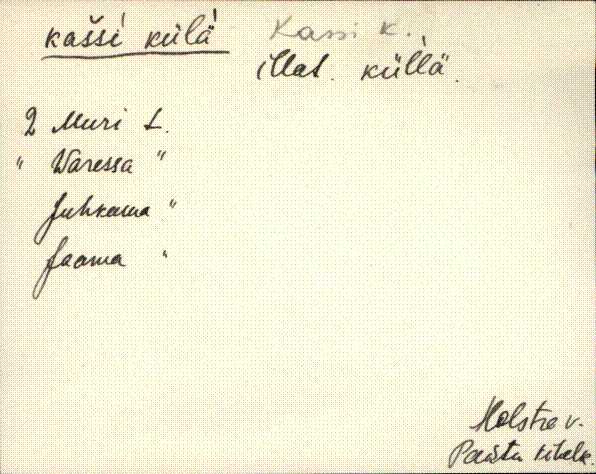 kašši külä Kassi k.
illat. küllä.
2 Muri t.
" Waressa "
Juhkama "
Jaama "
Holstre v.
Paistu kihelk.